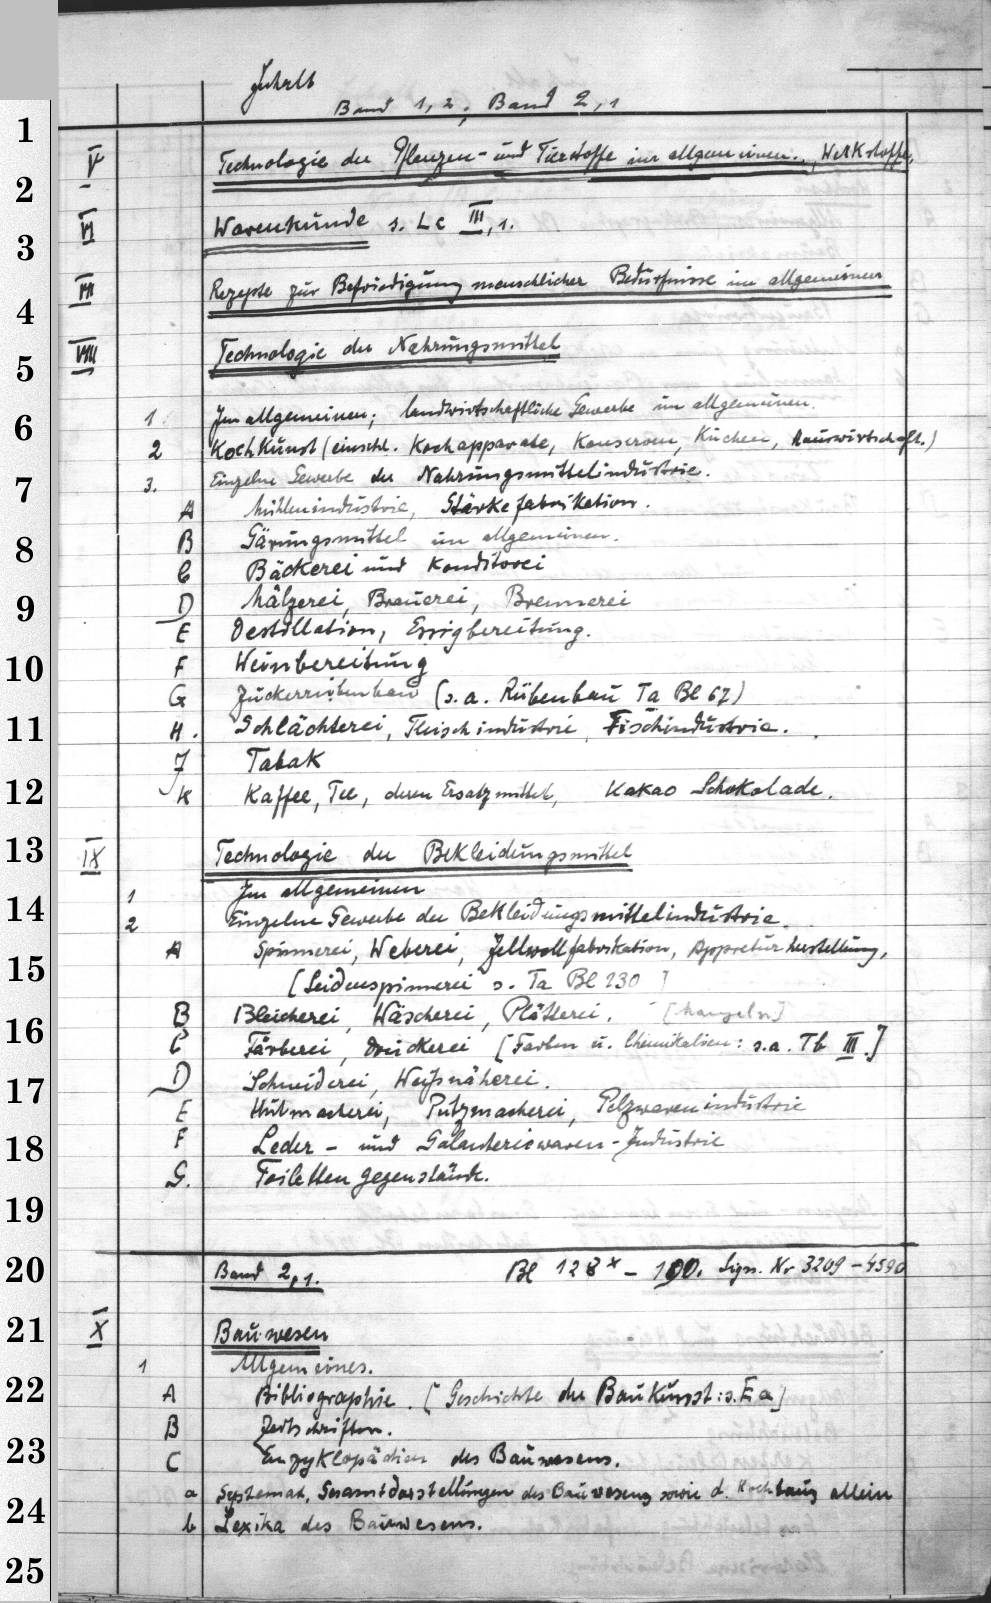 Inhalt
Band 1,2; Band 2,1
1
V Technologie der Pflanzen- und Tierstoffe im allgemeinen., Werkstoffe,
2
VI Warenkunde s. Lc III,1.
3
VII Rezepte zur Befriedigung menschlicher Bedürfnisse im allgemeinen
4
VIII Technologie der Nahrungsmittel
5
1. Im allgemeinen; landwirtschaftliche Gewerbe im allgemeinen.
6
2 Kochkunst (einschl. Kochapparate, Konserven, Kuchen, Hauswirtschaft.)
3. Einzelne Gewerbe der Nahrungsmittelindustrie.
7
A Mühlenindustrie, Stärkefabrikation.
B Gärungsmittel im allgemeinen.
8
C Bäckerei und Konditorei
D Mälzerei, Brauerei, Brennerei
9
E Destillation, Essigbereitung.
F Weinbereitung
10
G Zuckerrübenbau (s.a. Rübenbau Ta Bl 67)
H. Schlächterei, Fleischindustrie, Fischindustrie.
11
J Tabak
K Kaffee, Tee, deren Ersatzmittel, Kakao Schokolade.
12
13
IX Technologie der Bekleidungsmittel
1 Im allgemeinen
14
2 Einzelne Gewerbe der Bekleidungsmittelindustrie.
A Spinnerei, Weberei, Zellwollfabrikation, Appreturherstellung,
15
[Seidenspinnerei s. Ta Bl 230]
B Bleicherei, Wäscherei, Plätterei. [Mangeln]
16
C Färberei, Druckerei [Farben u. Chemikalien: s.a. Tb III.]
D Schneiderei, Weißnäherei.
17
E Hutmacherei, Putzmacherei, Pelzwarenindustrie
F Leder- und Galanteriewaren-Industrie
18
G. Toilettengegenstände.
19
20
Band 2,1. Bl 128x - 190. Sign. Nr 3209-4590
21
X Bauwesen
1 Allgemeines.
22
A Bibliographie. [Geschichte der Baukunst: s. Ea]
B Zeitschriften.
23
C Enzyklopädien des Bauwesens.
a Systemat. Gesamtdarstellungen des Bauwesens sowie d. Hochbaus allein
24
b Lexika des Bauwesens.
25